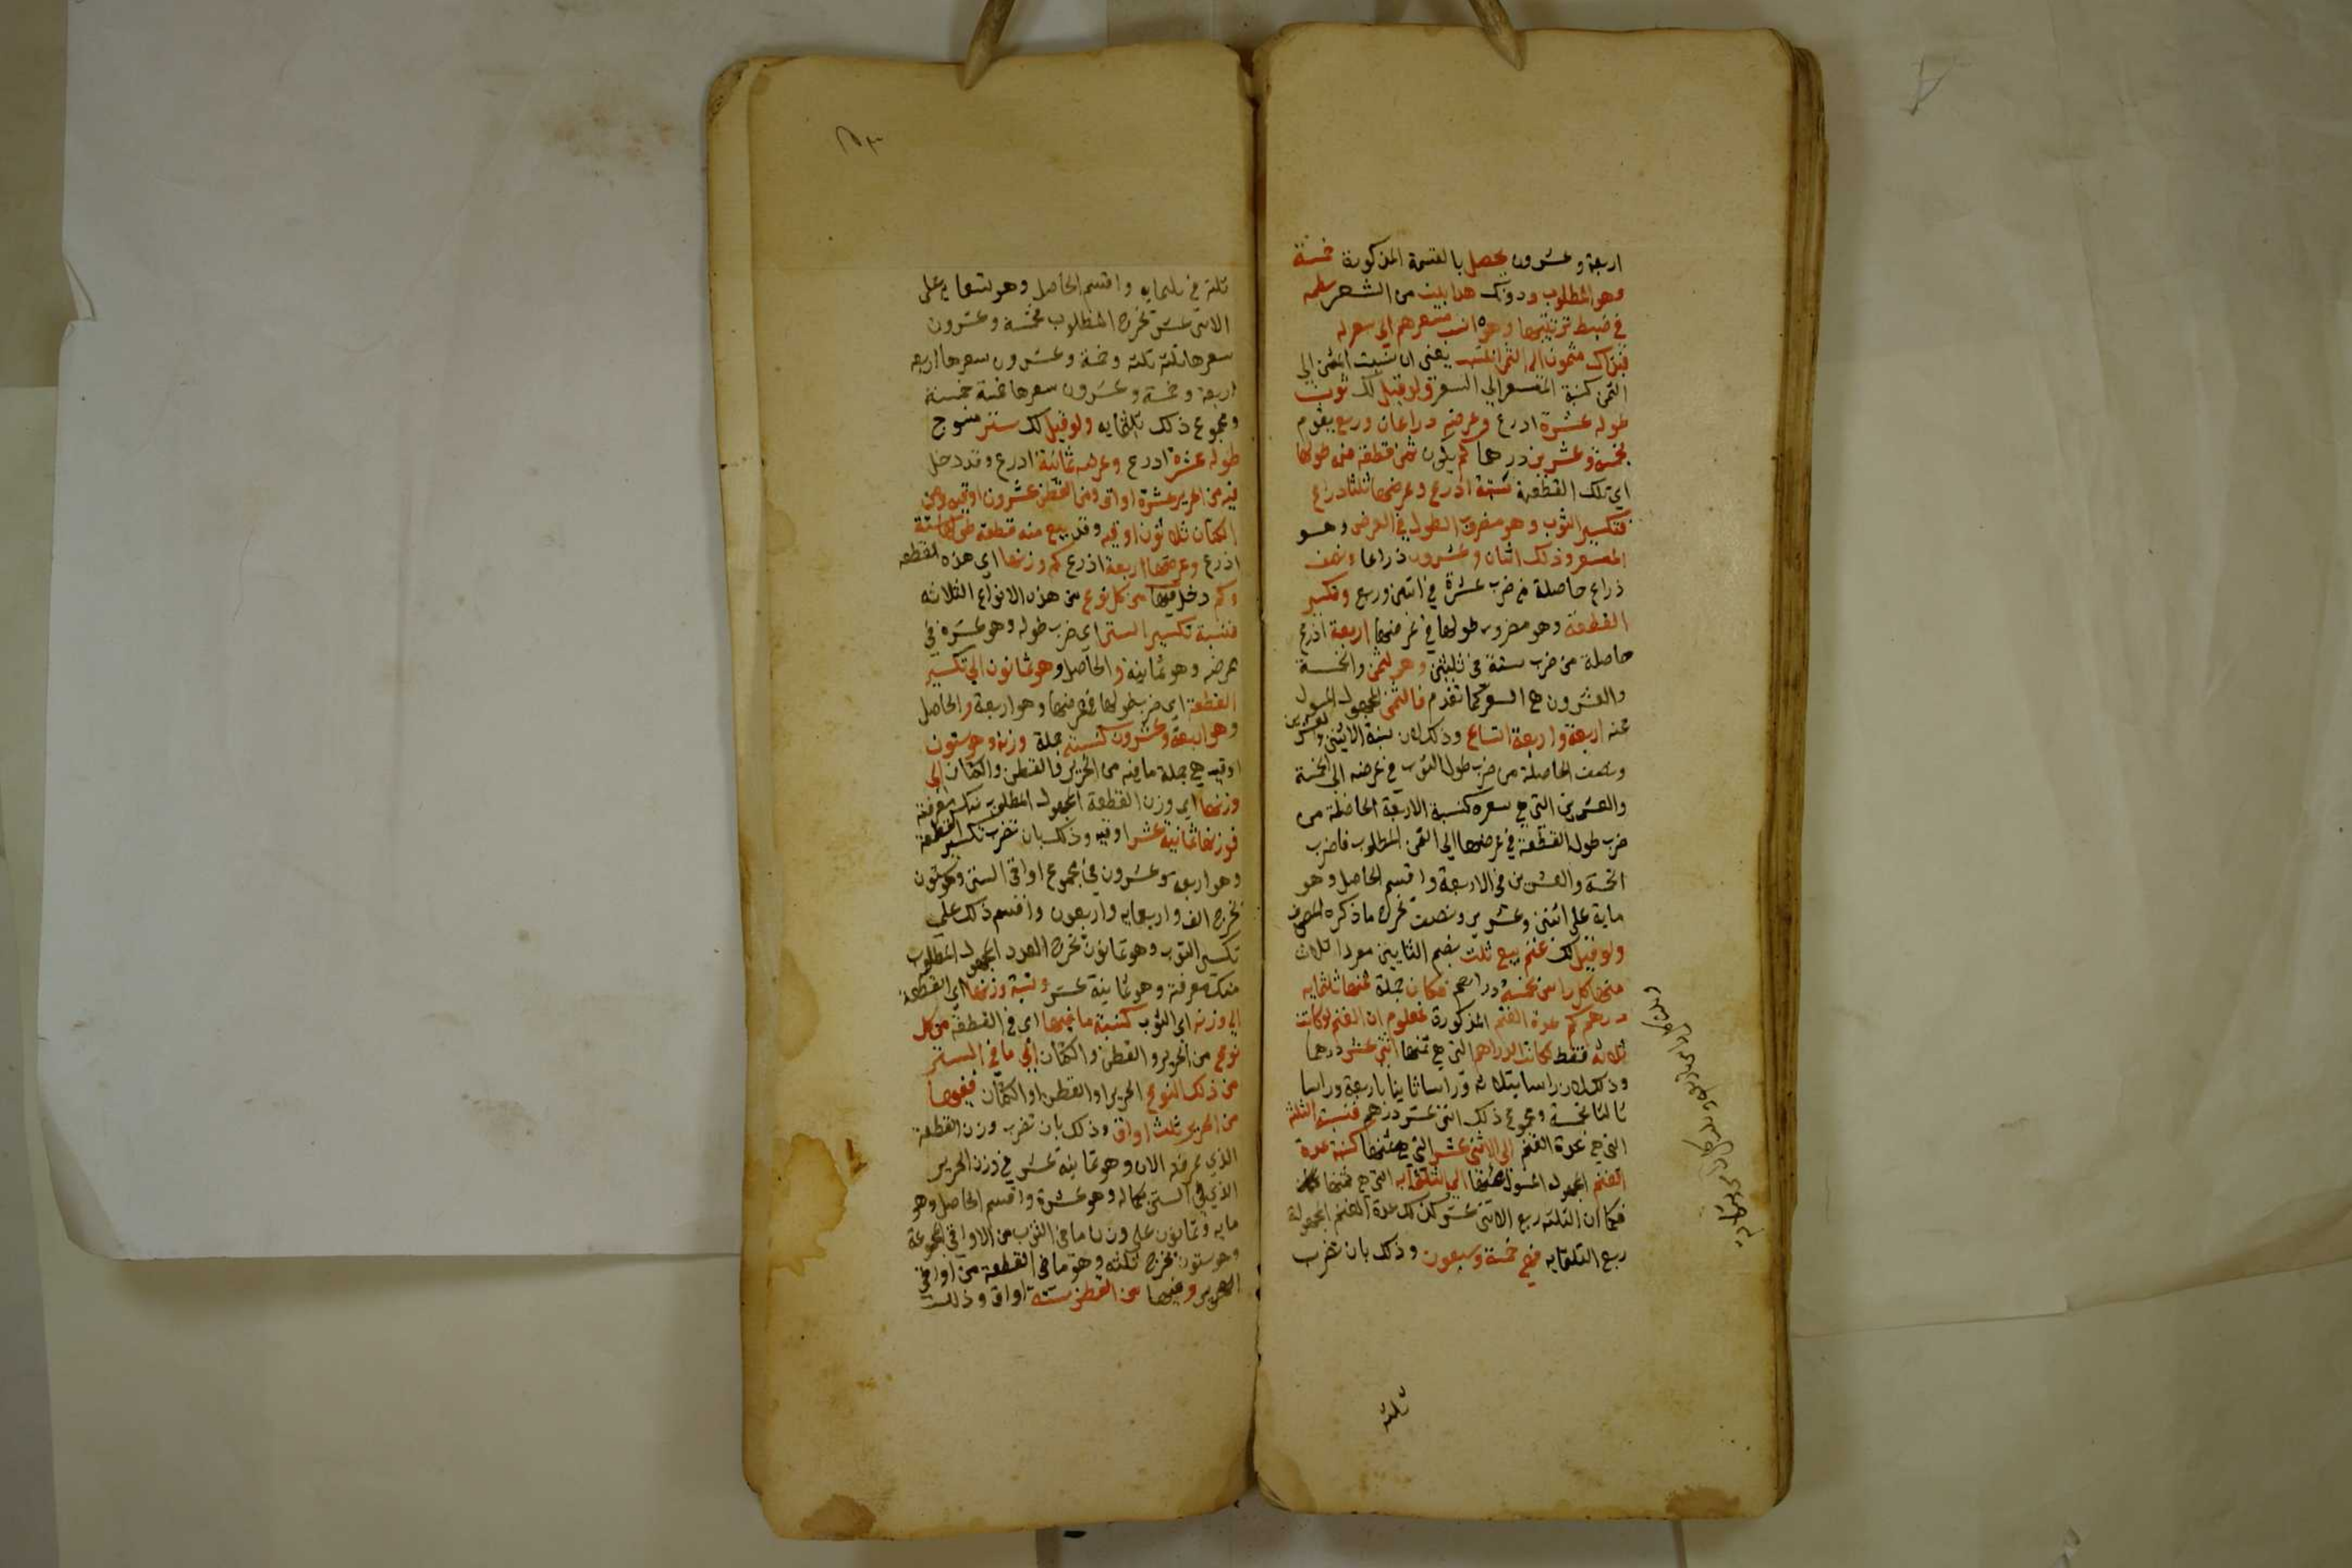 اربعة وعشرون يحصل بالقسمة المذكورة خمسة
وهو المطلوب ودونك هذا بيت من الشعر
في ضبط ترتيبها وهو انسب مسعرهم الى سعر له
مثمون الى الثمن انتسب يعني ان نسبة المثمن الى
الثمن كنسبة المسعر الى السعر ولو قيل لك ثوب
طوله عشرة اذرع وعرضه ذراعان وربع يقوم
بخمسة وعشرين درهما كم يكون ثمن قطعة منه طولها
اي تلك القطعة ستة اذرع وعرضها ثلثا ذراع
فتكسير الثوب وهو مضروب الطول في العرض وهو
المسعر وذلك اثنان وعشرون ذراعا ونصف
ذراع حاصلة من ضرب عشرة في اثنين وربع وتكسير
القطعة وهو مضروب طولها في عرضها اربعة اذرع
حاصلة من ضرب ستة في ثلثين وهو المثمن والخمسة
والعشرون هي السعر كما تقدم فالثمن المجهول المسول
عنه اربعة واربعة اتساع وذلك لان نسبة الاثنين والعشرين
ونصف الحاصلة من ضرب طول الثوب في عرضه الى الخمسة
والعشرين التي هي سعره كنسبة الاربعة الحاصلة من
ضرب طول القطعة في عرضها الى الثمن المطلوب فاضرب
الخمسة والعشرين في الاربعة واقسم الحاصل وهو
ماية على اثنين وعشرين ونصف يخرج ما ذكره المصنف
ولو قيل لك غنم بيع ثلث بضم الثا يعني معدا ثلاث
منها كل راس بخمسة دراهم فكان جملة ثمنها ثلثمايه
درهم كم عدة الغنم المذكورة فمعلوم ان الغنم لو كانت
ثلاثة فقط لكانت الدراهم التي هي ثمنها اثني عشر درهما
وذلك لان راسا بثلاثه وراسا ثانيا باربعة وراسا
ثالثا بخمسة ومجموع ذلك اثني عشر درهم فنسبة الثلثة
التي هي عدة الغنم الى الاثني عشر التي هي ثمنها كنسبة عدة
الغنم المجهول المسول عنها الى الثلثمايه التي هي ثمنها
فكما ان الثلثه ربع الاثني عشر كذلك عدة الغنم المجهولة
ربع الثلثمايه فهي خمسة وسبعون وذلك بان تضرب
ثلثه
ثلثة في ثلثمايه واقسم الحاصل وهو تسعمايه على
الاثني عشر تخرج المطلوب خمسة وعشرون
سعرها ثلثه ثلثه وخمسة وعشرون سعرها اربعه
اربعة وخمسة وعشرون سعرها خمسة خمسة
ومجموع ذلك ثلثمايه ولو قيل لك ستر منسوج
طوله عشرة اذرع وعرضه ثمانية اذرع وقد دخل
فيه من الحرير عشرة اواق ومن القطن عشرون اوقيه ومن
الكتان ثلاثون اوقيه وقد بيع منه قطعة طولها ستة
اذرع وعرضها اربعة اذرع كم وزنها اي هذه القطعه
وكم دخل فيها من كل نوع من هذه الانواع الثلاثه
فنسبة تكسير الستر اي ضرب طوله وهو عشره في
عرضه وهو ثمانية والحاصل وهو ثمانون الى تكسير
القطعة اي ضرب طولها في عرضها وهو اربعة والحاصل
وهو اربعة وعشرون كنسبة جملة وزنه وهو ستون
اوقيه هي جملة ما فيه من الحرير والقطن والكتان الى
وزنها اي وزن القطعة المجهول المطلوب منك معرفته
فوزنها ثمانية عشر اوقيه وذلك بان تضرب تكسير القطعة
وهو اربعه وعشرون في مجموع اواقي الستر وهو ستون
تخرج الف واربعمايه واربعون واقسم ذلك على
تكسير الثوب وهو ثمانون تخرج العدد المجهول المطلوب
منك معرفته وهو ثمانية عشر ونسبة وزنها اي القطعة
الى وزنه اي الثوب كنسبة ما فيها اي في القطعة من كل
نوع من الحرير والقطن والكتان الى ما في الستر
من ذلك النوع الحرير او القطن او الكتان ففيها
من الحرير ثلث اواق وذلك بان تضرب وزن القطعة
الذي عرفته الان وهو ثمانية عشر في وزن الحرير
الذي في الستر بكماله وهو عشرة واقسم الحاصل وهو
مايه وثمانون على وزن ما في الثوب من الاواقي المجموعة
وهو ستون تخرج ثلثه وهو ما في القطعة من اواقي
الحرير وفيها من القطن ستة اواق وذلك